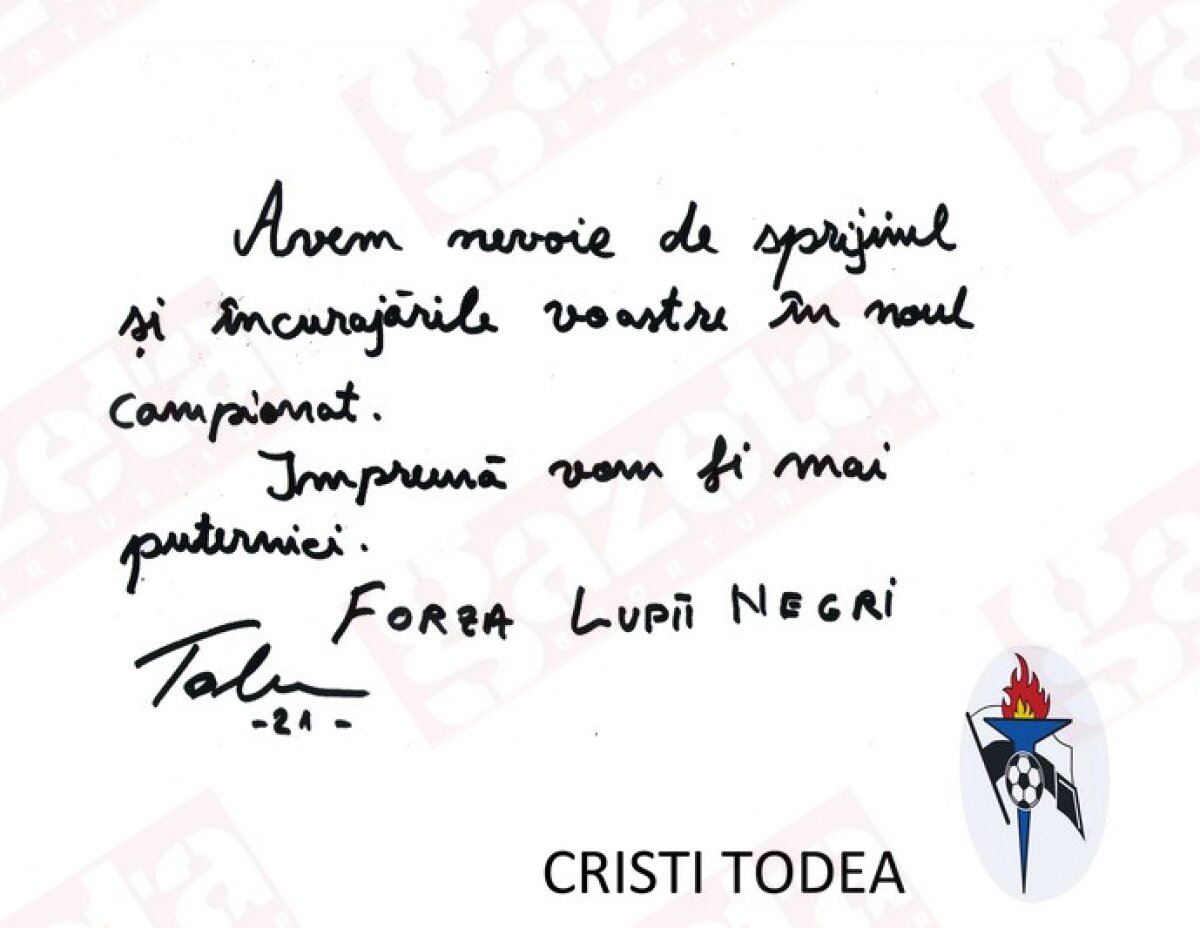 Avem nevoie de sprijinul
și încurajările voastre în noul
campionat.
Impreună vom fi mai
puternici.
FORZA LUPII NEGRI
-21-
CRISTI TODEA
gazeta
SPORTURILOR